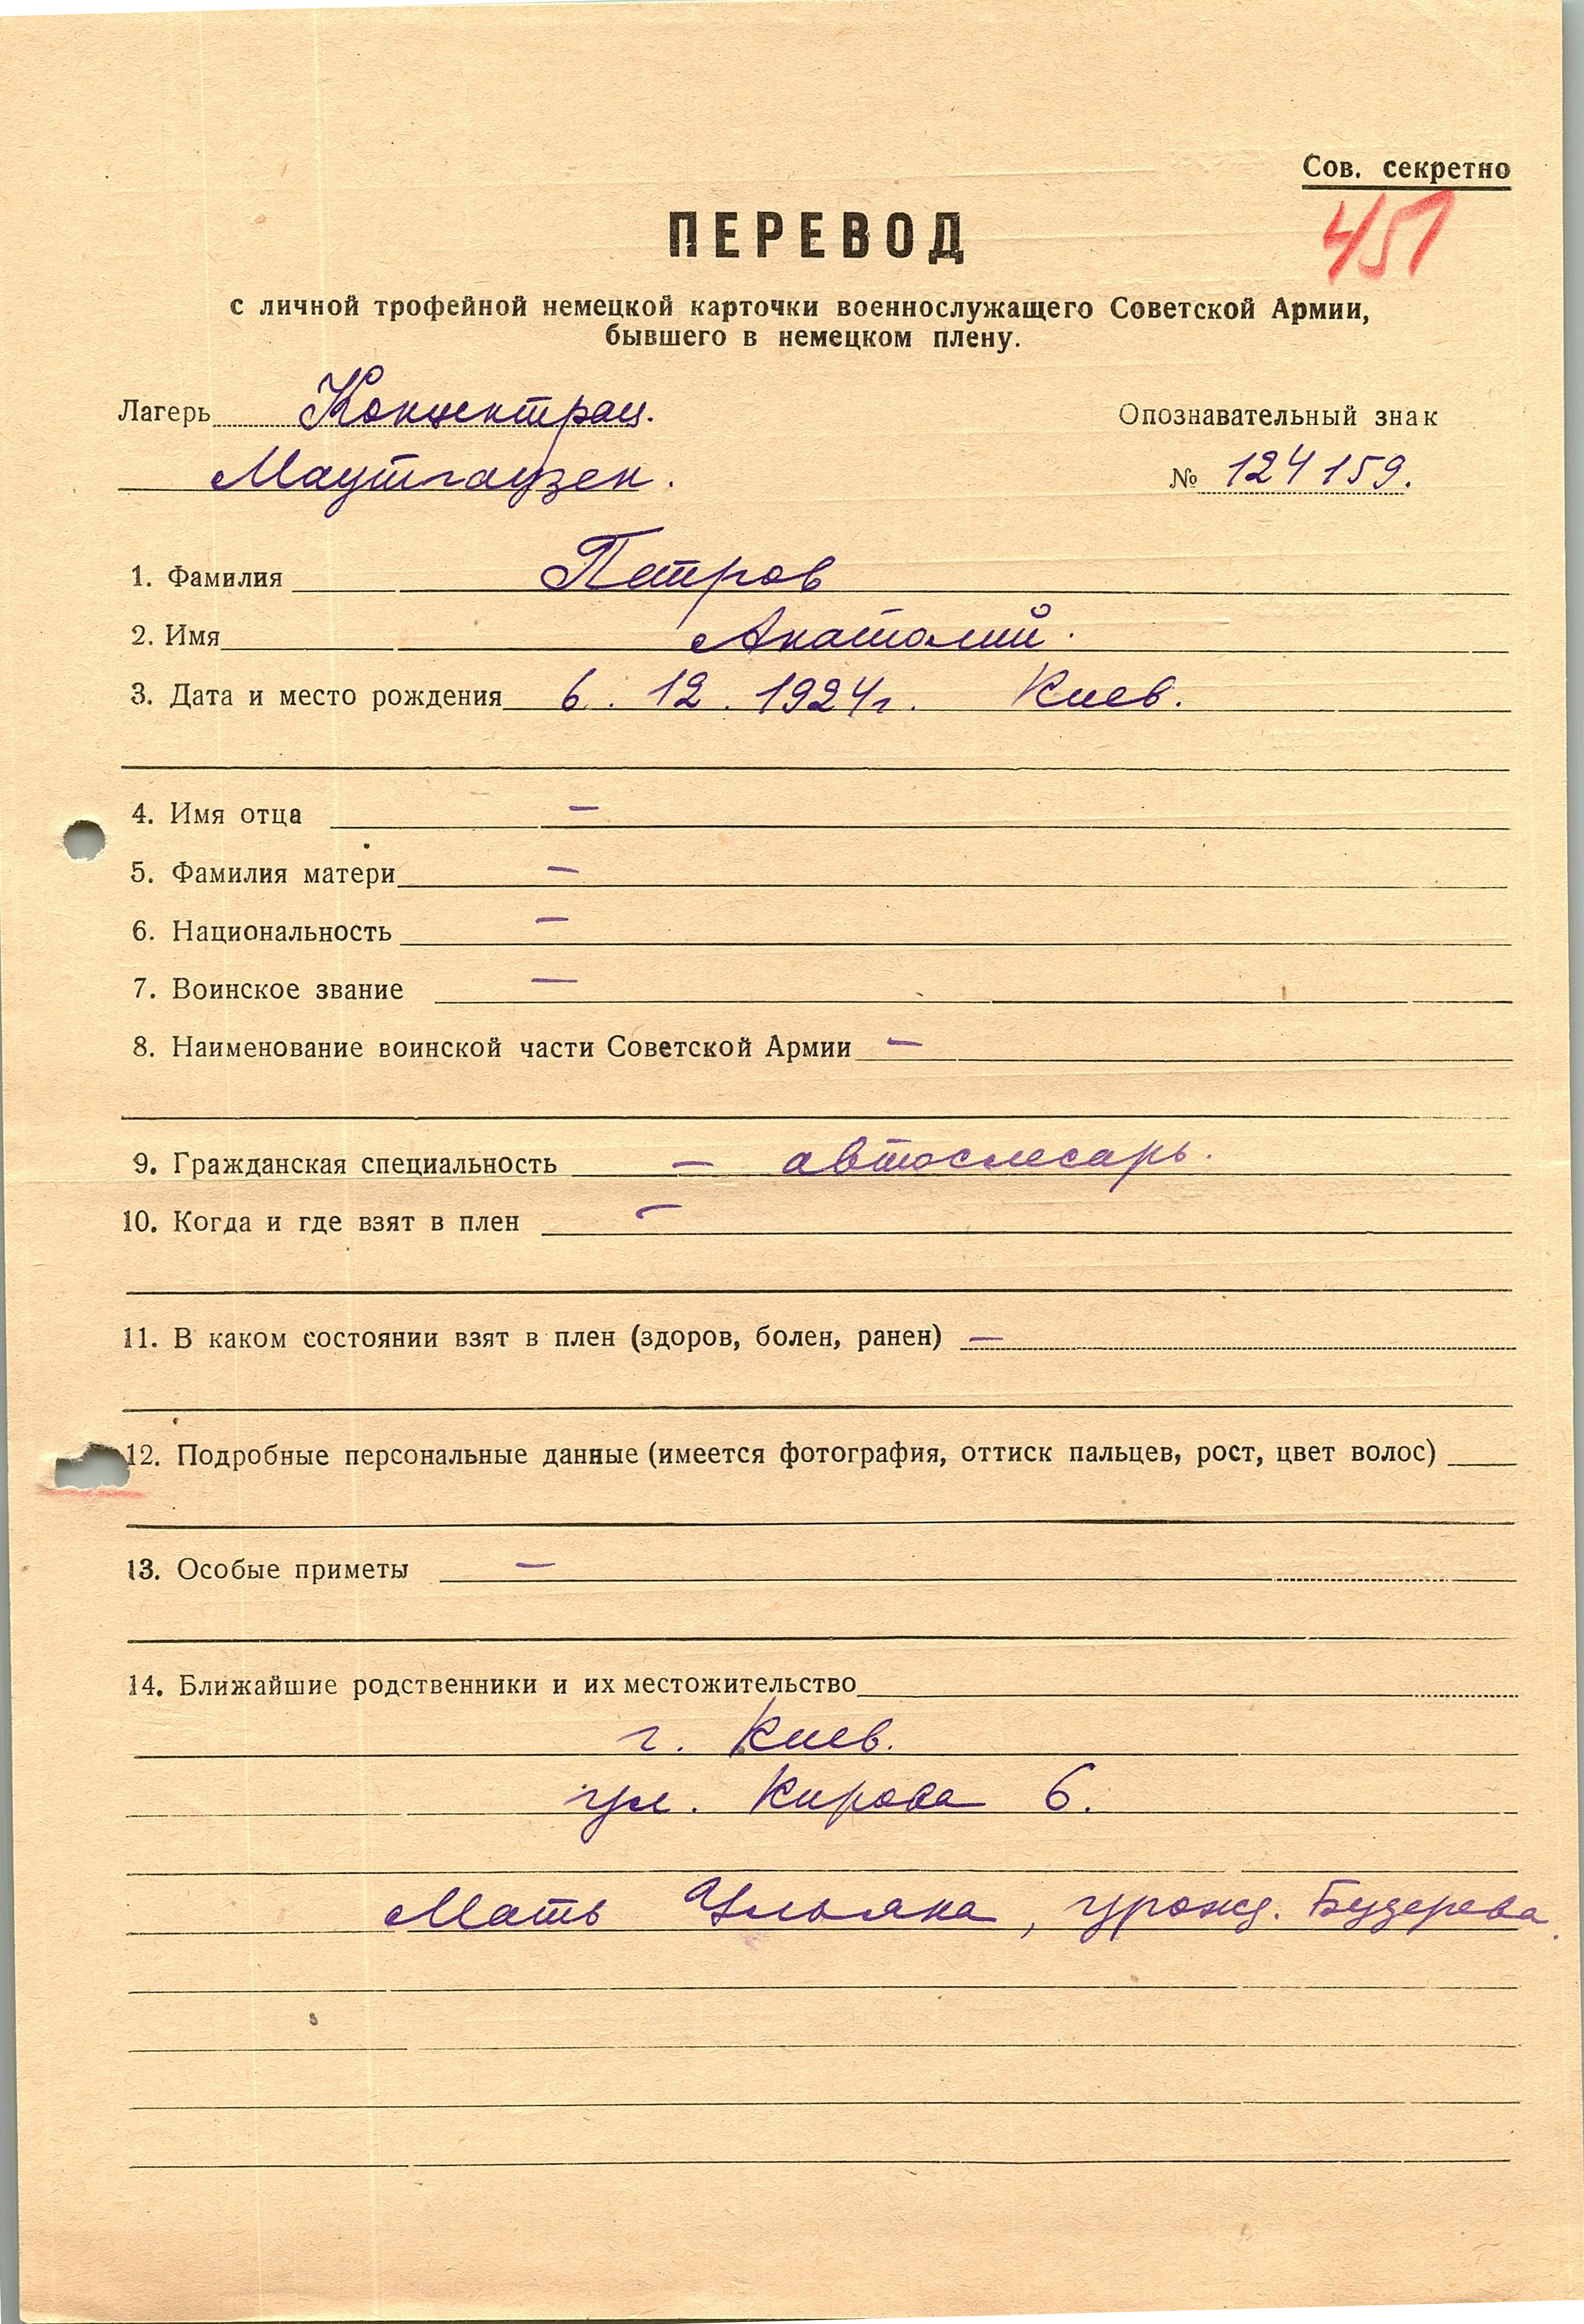 Сов. секретно
451
ПЕРЕВОД
с личной трофейной немецкой карточки военнослужащего Советской Армии,
бывшего в немецком плену.
Лагерь Концентрац. Опознавательный знак
Маутгаузен. № 124159.
1. Фамилия Петров
2. Имя Анатолий.
3. Дата и место рождения 6. 12. 1924г. Киев.
4. Имя отца —
5. Фамилия матери —
6. Национальность —
7. Воинское звание —
8. Наименование воинской части Советской Армии —
9. Гражданская специальность — автослесарь.
10. Когда и где взят в плен —
11. В каком состоянии взят в плен (здоров, болен, ранен) —
12. Подробные персональные данные (имеется фотография, оттиск пальцев, рост, цвет волос)
13. Особые приметы —
14. Ближайшие родственники и их местожительство
г. Киев.
ул. Кирова 6.
Мать Ульяна, урожд. Будерева.